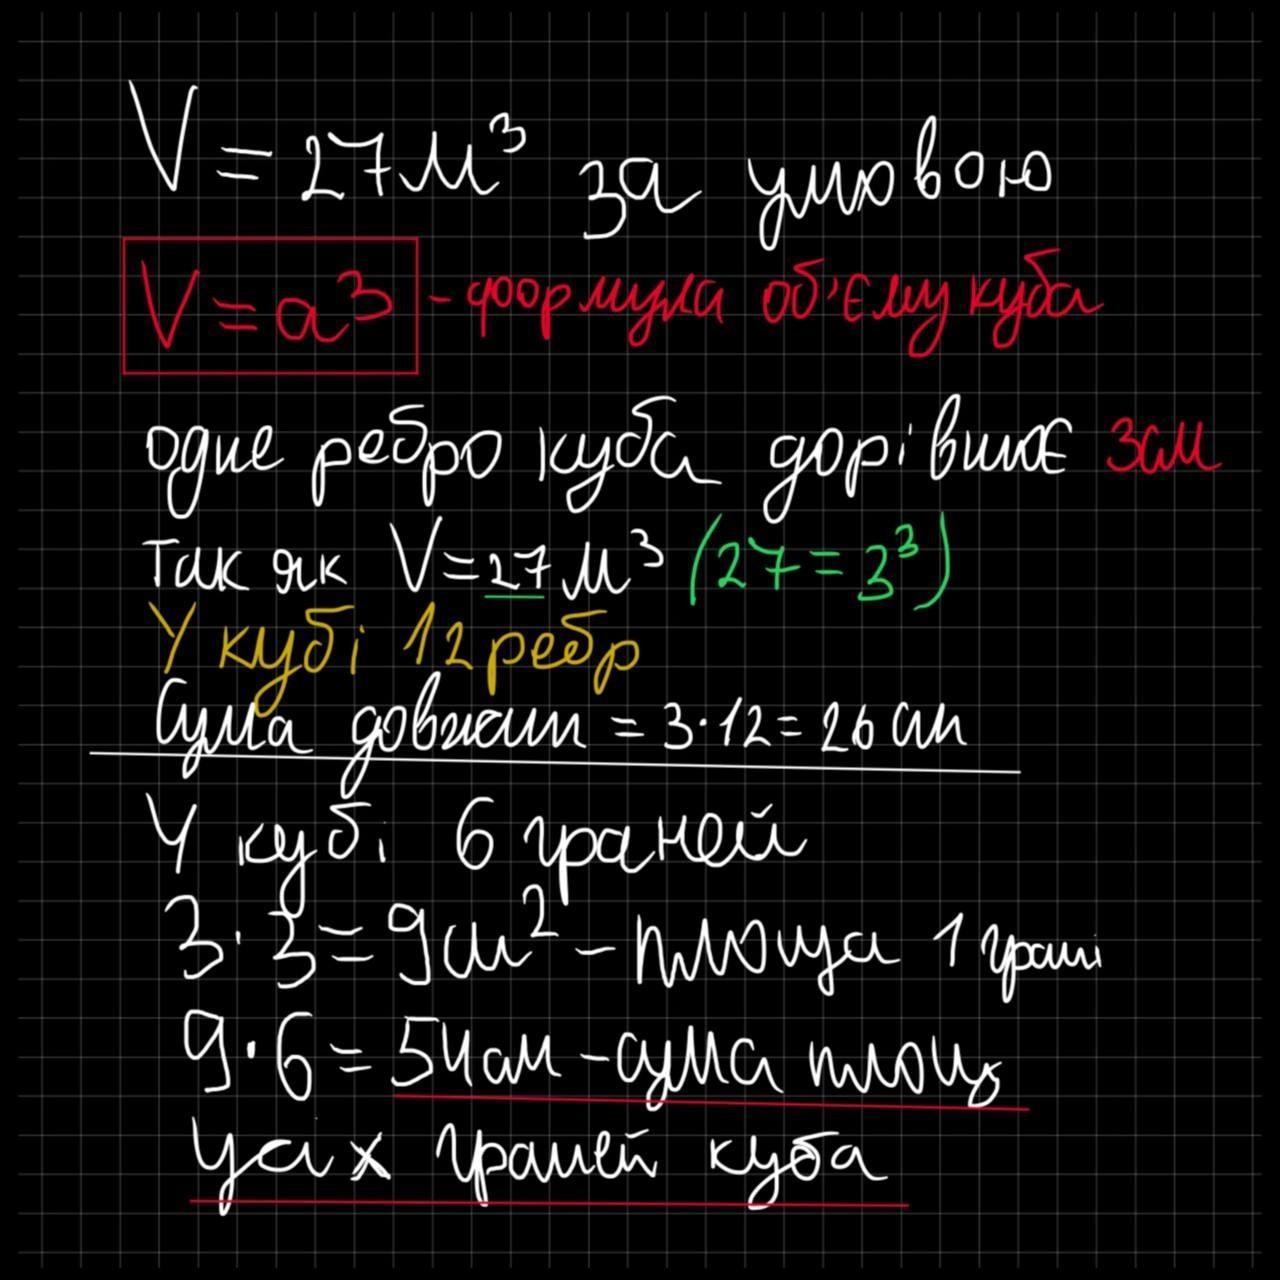 V = 27 м³ за умовою
V = a³ - формула об'єму куба
одне ребро куба дорівнює 3см
так як V = 27 м³ (27 = 3³)
У кубі 12 ребр
Сума довжин = 3·12 = 26 см
У кубі 6 граней
3·3 = 9см² - площа 1 грані
9·6 = 54см - сума площ
усіх граней куба